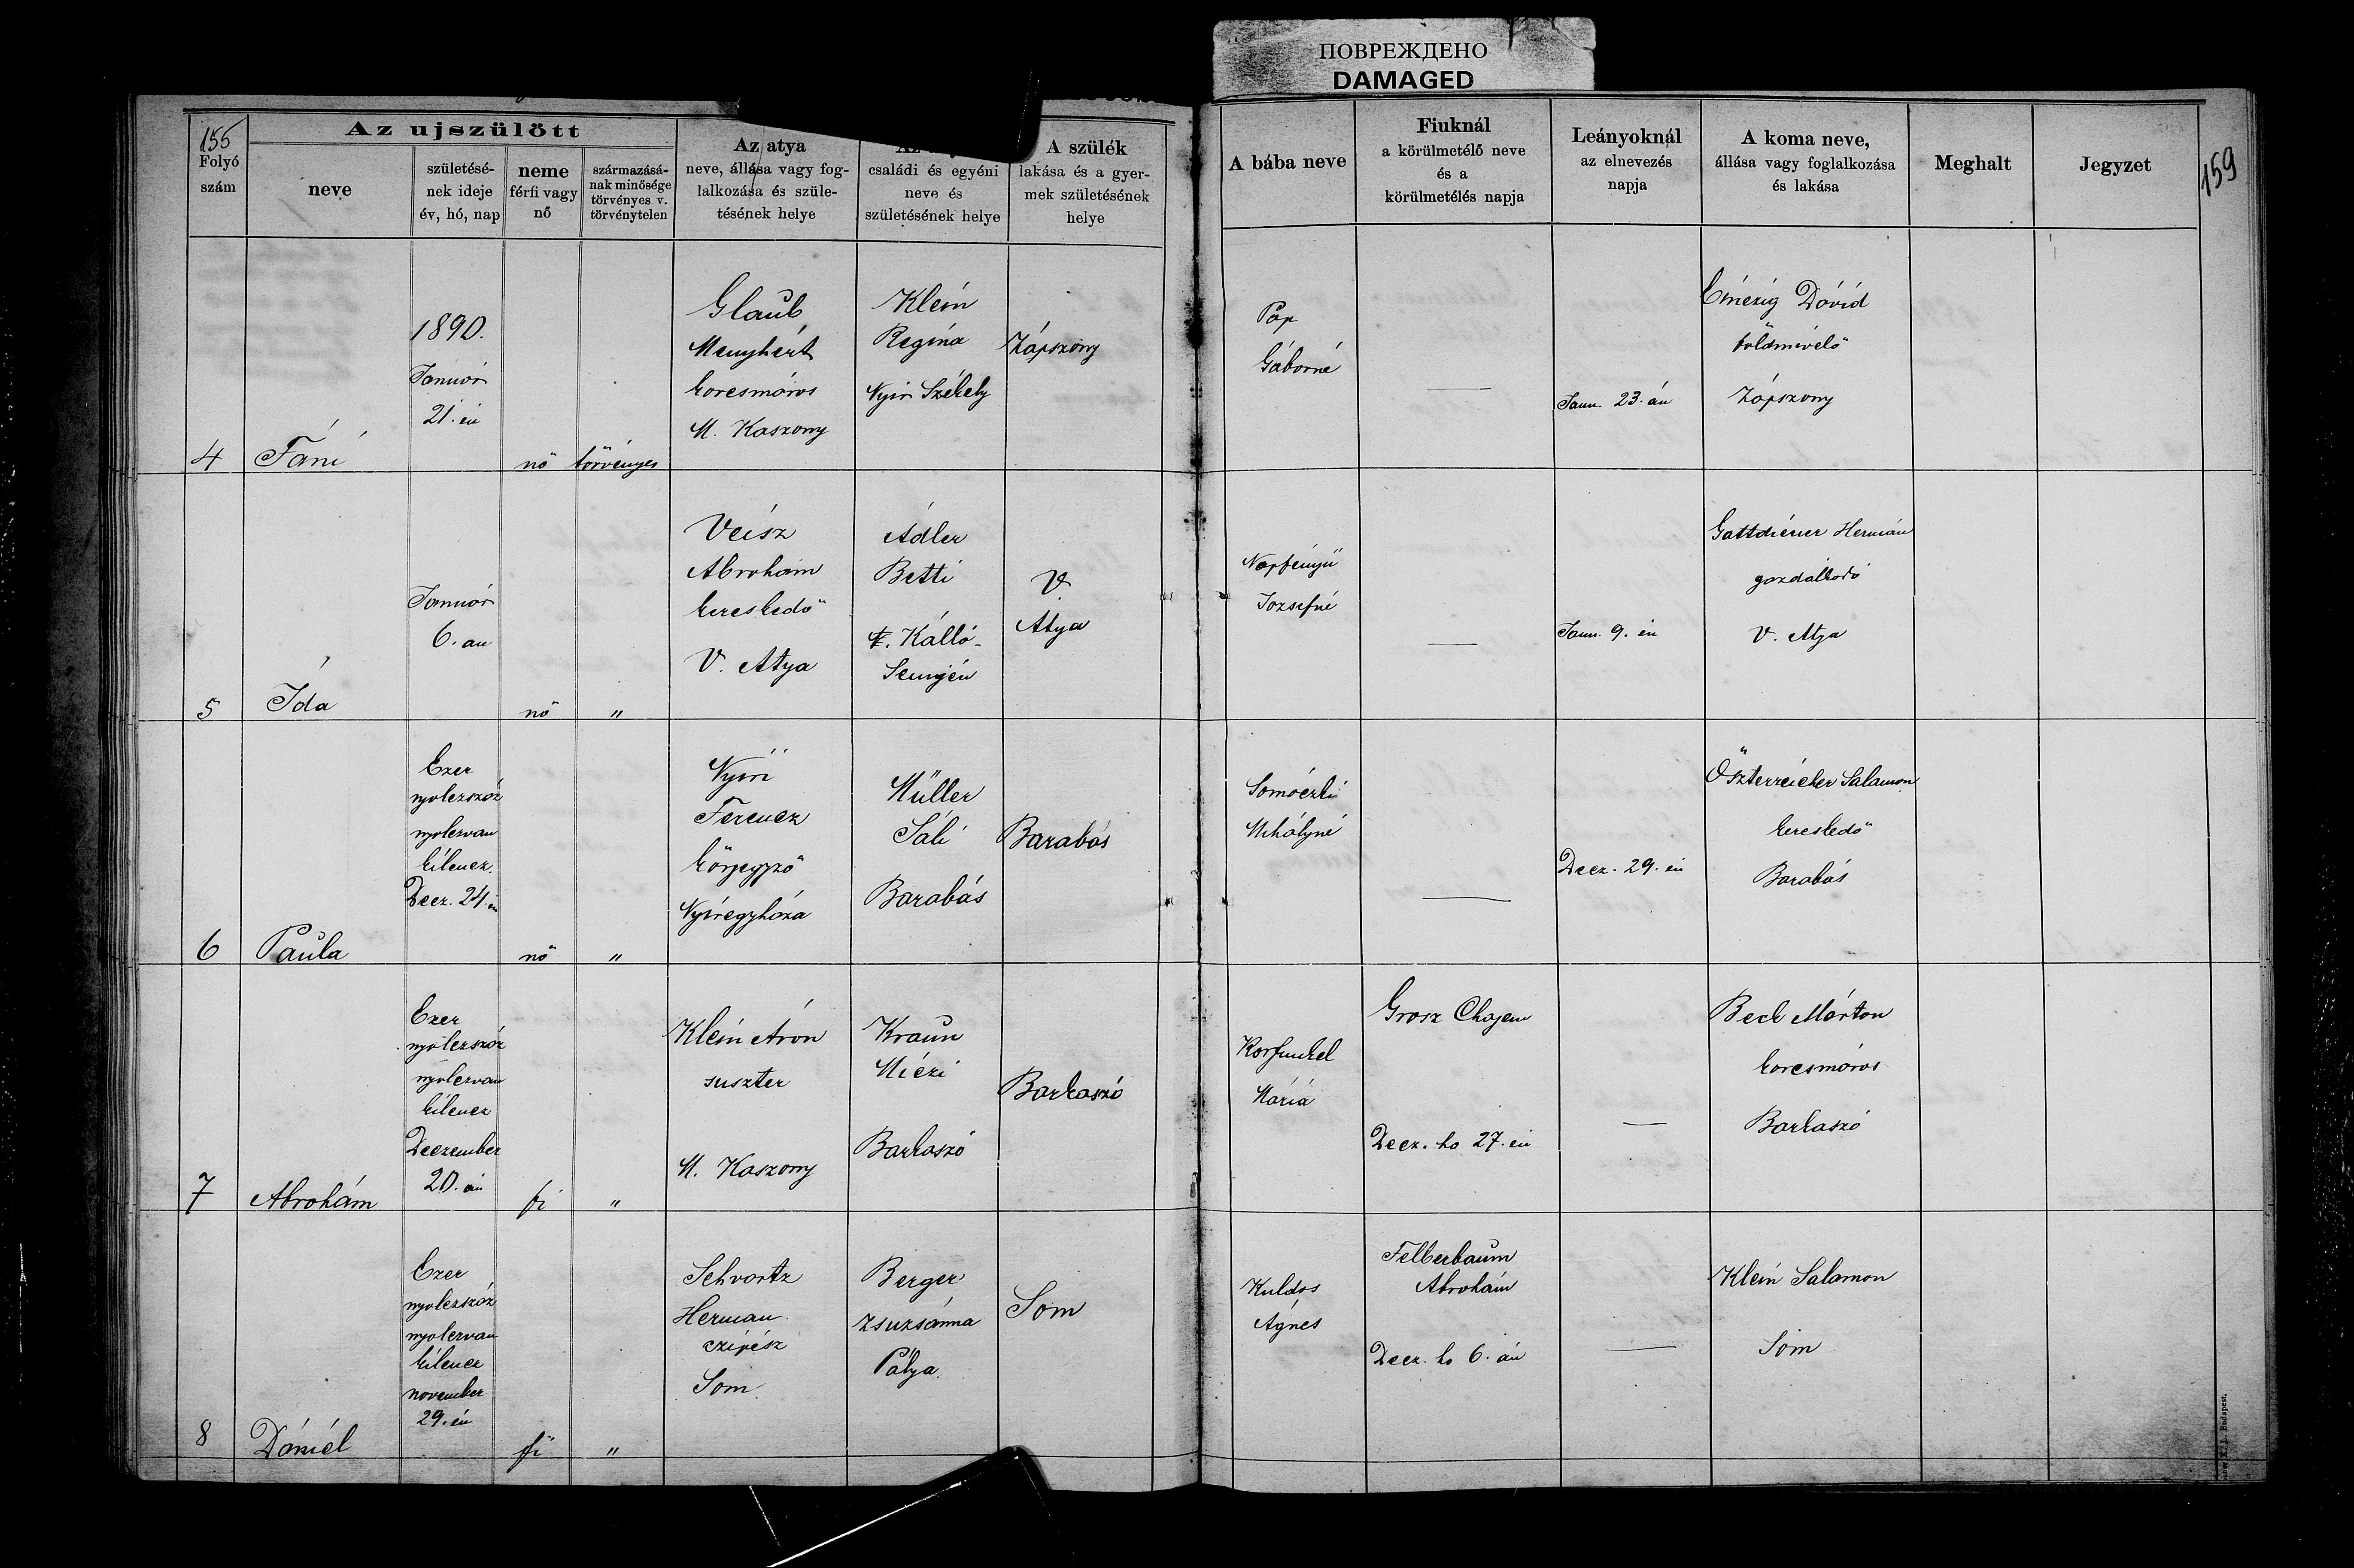 ПОВРЕЖДЕНО
DAMAGED
155
Folyó
szám
Az ujszülött
neve
születésé-
nek ideje
év, hó, nap
neme
férfi vagy
nő
származásá-
nak minősége
törvényes v.
törvénytelen
Az atya
neve, állása vagy fog-
lalkozása és szüle-
tésének helye
családi és egyéni
neve és
születésének helye
A szülék
lakása és a gyer-
mek születésének
helye
A bába neve
Fiuknál
a körülmetélő neve
és a
körülmetélés napja
Leányoknál
az elnevezés
napja
A koma neve,
állása vagy foglalkozása
és lakása
Meghalt
Jegyzet
159
4
Fáni
1890.
Január
21. én
nő
törvényes
Glaub
Menyhért
korcsmáros
M. Kaszony
Klein
Regina
Nyir Székely
Zápszony
Pap
Gáborné
—
Jann. 23. án
Dávid
földmivelő
Zápszony
5
Ida
Január
6. an
nő
"
Veisz
Abrohám
kereskedő
V. Atya
Adler
Betti
Kálló-
Semjén
V
Atya
Napfényü
Jozsefné
—
Jann. 9. én
Gattdiener Hermán
gazdálkodó
V. Atya
6
Paula
Ezer
nyolczszáz
nyolczvan
kilencz.
Decz. 24. én
nő
"
Nyiri
Ferencz
körjegyző
Nyiregyháza
Müller
Sáli
Barabás
Barabás
Somóczki
Mihályné
—
Decz. 29. én
Öszterreicher Salamon
kereskedő
Barabás
7
Abrohám
Ezer
nyolczszáz
nyolczvan
kilencz
Deczember
20. án
fi
"
Klein Áron
suszter
M. Kaszony
Kraun
Miczi
Barkaszó
Barkaszó
Korfunkel
Mária
Grosz Chajem
Decz. ho 27. én
—
Beck Márton
korcsmáros
Barkaszó
8
Dániel
Ezer
nyolczszáz
nyolczvan
kilencz
november
29. én
fi
"
Schvartz
Herman
czipész
Som
Berger
Zsuzsánna
Pálya
Som
Kuldos
Ágnes
Felberbaum
Abrohám
Decz. ho 6. án
—
Klein Salamon
Som